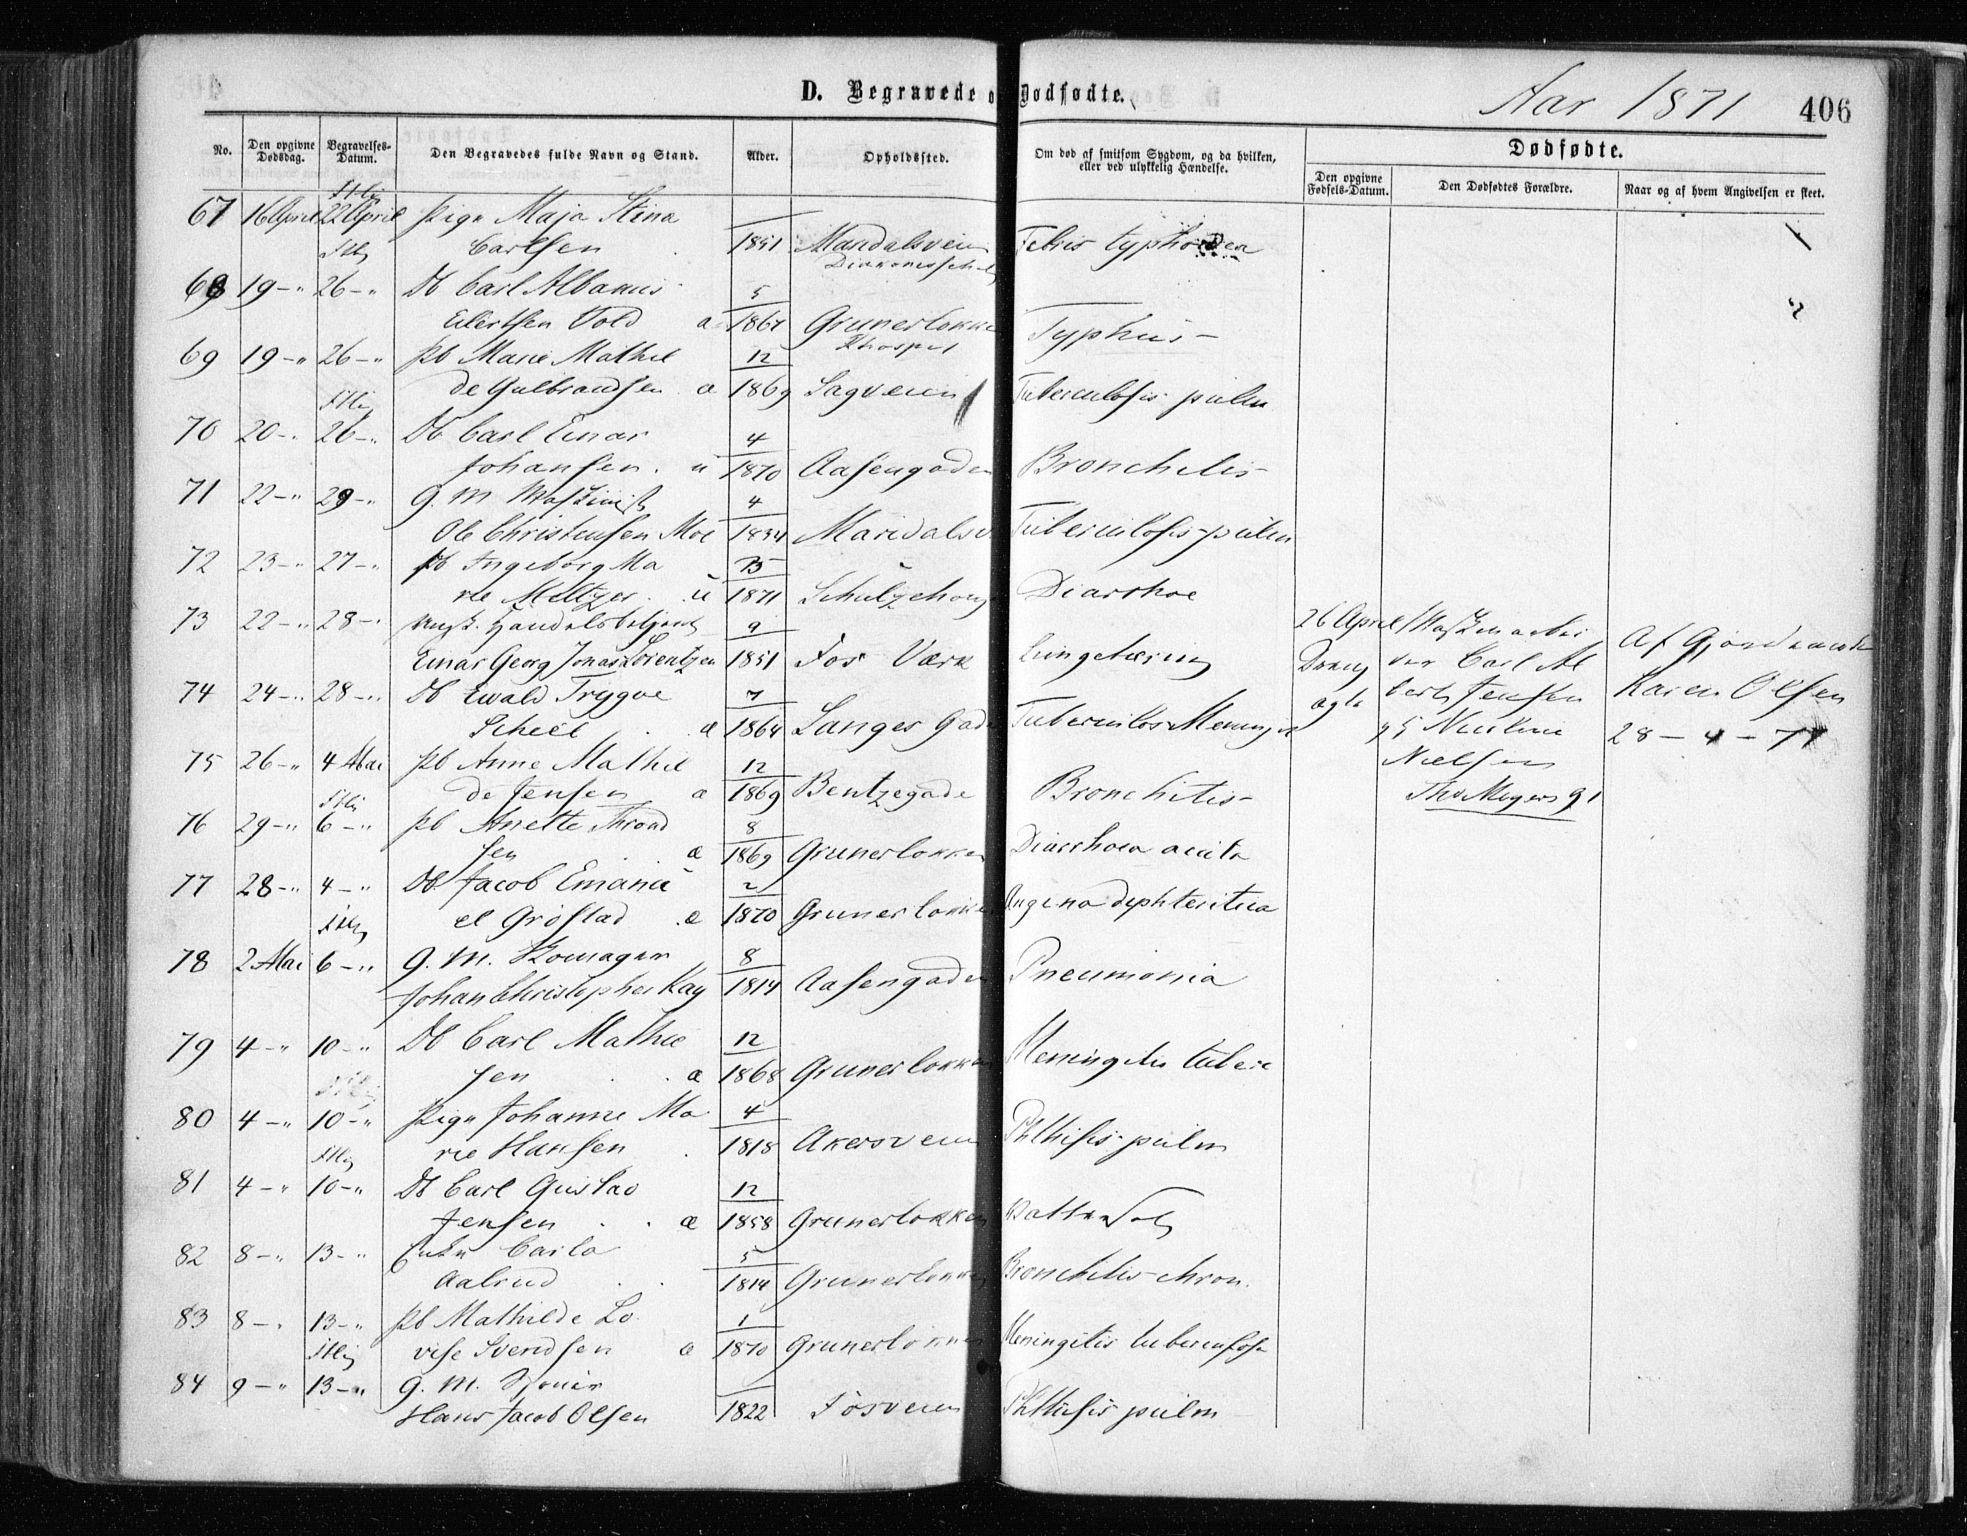 D. Begravede o
Dødfødte.
Aar 1871
406
No.
Den opgivne Dødsdag.
Begravelses-Datum.
Den Begravedes fulde Navn og Stand.
Alder.
Opholdssted.
Om død af smitsom Sygdom, og da hvilken, eller ved ulykkelig Hændelse.
Dødfødte.
Den opgivne Fødsels-Datum.
Den Dødfødtes Forældre.
Naar og af hvem Angivelsen er skeet.
67 16 April 22 April Pign Maja Stina
Carlsen 1851 Febris typhoidea
68 19 -" 26 -" Db Carl Albanus 5
Eilertsen Vold a 1867 Grunerløkke Typhus -
69 19 -" 26 -" Pb Marie Mathil 12
de Gulbrandsen a 1869 Sagveien Tuberculosis pulm
70 20 -" 26 -" Db Carl Einar 4
Johansen . u 1870 Aasengaden Bronchitis -
71 22 -" 29 -" G. M. Maskinist 4
Ole Christensen Moe 1834 Maridalsv Tuberculosis pulm
72 23 -" 27 -" Pb Ingeborg Ma
rie Meltzer . u 1871 Diarrhoe
73 22 -" 28 -" Ungk. Handelsbetjent 9
Einar Georg Jonas Lorentzen 1851 Fos Værk Lungetæring
74 24 -" 28 -" Db Ewald Trygve 7
Scheel . a 1864 Langes Gade
75 26 -" 4 Mai Pb Anne Mathil 12
de Jensen a 1869 Bentzegade Bronchitis -
76 29 -" 6 -" Pb Anette Thrond 8
sen . . a 1869 Grunerløkken Diarrhoea acuta
77 28 -" 4 -" Db Jacob Emanu 2
el Grøstad æ 1870 Grunerløkken Angina diphteritica
78 2 Mai 6 -" G. M. Skomager 8
Johan Christopher Kay 1814 Aasengaden Pneumonia
79 4 -" 10 -" Db Carl Mathie 12
sen . . a 1868 Grunerløkken Meningitis
80 4 -" 10 -" Pign Johanne Ma 4
rie Hansen . 1818 Akersveien Phthisis pulm
81 4 -" 10 -" Db Carl Gustav 12
Jensen . . æ 1858 Grunerløkken
82 8 -" 13 -" Enke Carla 5
Aalrud . . 1814 Grunerløkken Bronchitis chron.
83 8 -" 13 -" Pb Mathilde Lo 1
vise Svendsen a 1870 Grunerløkken Meningitis tuberculosa
84 9 -" 13 -" G. M.
Hans Jacob Olsen 1822 Fosveien Phthisis pulm
26 April
Dreng
ægte
Maskinarbei
der Carl Al
bert Jensen
Nielsen
Ths Meyers g 1
Af Gjordemoder
Karen Olsen
28 - 4 - 71